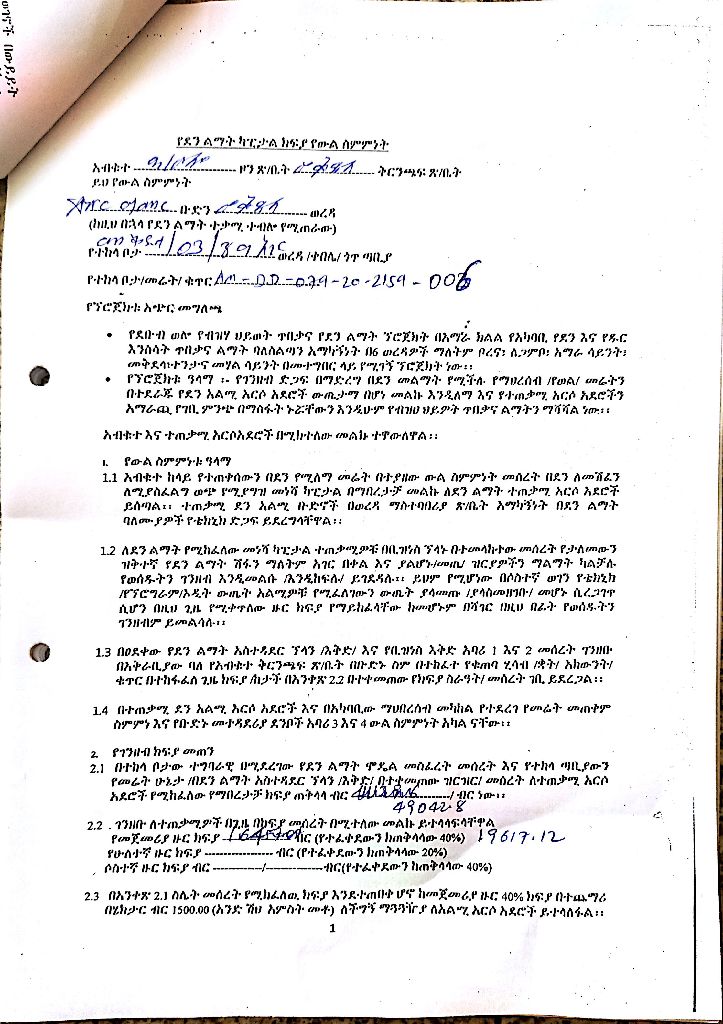 የደን ልማት ካፒታል ክፍያ የውል ስምምነት
አብቁተ ---------------- ዞን ጽ/ቤት ---------------- ቅርንጫፍ ጽ/ቤት
ይህ የውል ስምምነት
---------------- ቡድን ---------------- ወረዳ
(ከዚህ በኋላ የደን ልማት ተቃሚ ተብሎ የሚጠራው)
የተከላ ቦታ /03/ ወረዳ /ቀበሌ/ ጎጥ ጣቢያ
የተከላ ቦታ/መሬት/ ቁጥር AM-DD-079-20-2159-006
የፕሮጀክቱ አጭር መግለጫ
• የደቡብ ወሎ የብዝሃ ህይወት ጥበቃና የደን ልማት ፕሮጀክት በአማራ ክልል የአካባቢ የደን እና የዱር
እንስሳት ጥበቃና ልማት ባለስልጣን አማካኝነት በ6 ወረዳዎች ማለትም ቦረና፣ ለጋምቦ፣ አማራ ሳይንት፣
መቅደላ፣ተንታና መሃል ሳይንት በመተግበር ላይ የሚገኝ ፕሮጀክት ነው፡፡
• የፕሮጀክቱ ዓላማ ፡- የገንዘብ ድጋፍ በማድረግ በደን መልማት የሚችሉ የማህረሰብ /የወል/ መሬትን
በተደራጁ የደን አልሚ አርሶ አደሮች ውጤታማ በሆነ መልኩ እንዲለማ እና የተቃሚ አርሶ አደሮችን
አማራጪ የገቢ ምንጭ በማስፋት ኑሯቸውን እንዲሁም የብዝሀ ህይዎት ጥበቃና ልማትን ማሻሻል ነው፡፡
አብቁተ እና ተጠቃሚ አርሶአደሮች በሚከተለው መልኩ ተዋውለዋል፡፡
1. የውል ስምምነቱ ዓላማ
1.1 አብቁተ ከላይ የተጠቀሱውን በደን የሚለማ መሬት በተያዘው ውል ስምምነት መሰረት በደን ለመሸፈን
ለሚያስፈልግ ወጭ የሚያግዝ መነሻ ካፒታል በማበረታቻ መልኩ ለደን ልማት ተቃሚ አርሶ አደሮች
ይሰጣል፡፡ ተቃሚ ደን አልሚ ቡድኖች በወረዳ ማስተባበሪያ ጽ/ቤት አማካኝነት በደን ልማት
ባለሙያዎች የቴክኒክ ድጋፍ ይደረግላቸዋል፡፡
1.2 ለደን ልማት የሚከፈለው መነሻ ካፒታል ተጠቃሚዎቹ በቢዝነስ ፕላኑ በተመላከተው መሰረት የታለመውን
ዝቅተኛ የደን ልማት ሽፋን ማለትም አገር በቀል እና ያልሆኑ/መጤ/ ዝርያዎችን ማልማት ካልቻሉ
የወሰዱትን ገንዘብ እንዲመልሱ /እንዲከፍሉ/ ይገደዳሉ፡፡ ይህም የሚሆነው በሶስተኛ ወገን የቴክኒክ
/የፕሮግራም/ኦዲት ውጤት አልሚዎቹ የሚፈለገውን ውጤት ያላመጡ /ያላስመዘገቡ/ መሆኑ ሲረጋገጥ
ሲሆን በዚህ ጊዜ የሚቀጥለው ዙር ክፍያ የማይከፈላቸው ከመሆኑም በሻገር በዚህ በፊት የወሰዱትን
ገንዘብም ይመልሳሉ፡፡
1.3 በፀደቀው የደን ልማት አስተዳደር ፕላን /እቅድ/ እና የቢዝነስ እቅድ አባሪ 1 እና 2 መሰረት ገንዘቡ
በአቅራቢያው ባለ የአብቁተ ቅርንጫፍ ጽ/ቤት በቡድኑ ስም በተከፈተ የቁጠባ ሂሳብ /ቋት/ አካውንት/
ቁጥር በተከፋፈለ ጊዜ ክፍያ /ከታች በአንቀጽ 2.2 በተቀመጠው የክፍያ ስራዓት/ መሰረት ገቢ ይደረጋል፡፡
1.4 በተጠቃሚ ደን አልሚ አርሶ አደሮች እና በአካባቢው ማህበረሰብ መካከል የተደረገ የመሬት መጠቀም
ስምምነ እና የቡድኑ መተዳደሪያ ደንቦች አባሪ 3 እና 4 ውል ስምምነት አካል ናቸው፡፡
2. የገንዘብ ክፍያ መጠን
2.1 በተከላ ቦታው ተግባራዊ በሚደረገው የደን ልማት ሞዴል መስፈረት መሰረት እና የተከላ ጣቢያውን
የመሬት ሁኔታ /በደን ልማት አስተዳደር ፕላን /እቅድ/ በተቀመጠው ዝርዝር/ መሰረት ለተቃሚ አርሶ
አደሮች የሚከፈለው የማበረታቻ ክፍያ ጠቅላላ ብር ----------------/ ብር ነው፡፡
49042.8
2.2 . ገንዘቡ ለተጠቃሚዎች በጊዜ በክፍያ መሰረት በሚተለው መልኩ ይተላላፍላቸዋል
የመጀመሪያ ዙር ክፍያ ---------------- ብር (የተፈቀደውን ከጠቅላላው 40%) 19617.12
የሁለተኛ ዙር ክፍያ ---------------- ብር (የተፈቀደውን ከጠቅላላው 20%)
ሶስተኛ ዙር ክፍያ ብር ------------/------------ብር(የተፈቀደውን ከጠቅላላው 40%)
2.3 በአንቀጽ 2.1 ስሌት መሰረት የሚከፈለዉ ክፍያ እንደተጠበቀ ሆኖ ከመጀመሪያ ዙር 40% ክፍያ በተጨማሪ
በሄክታር ብር 1500.00 (አንድ ሽህ አምስት መቶ) ለችግኝ ማጓጓዥያ ለአልሚ አርሶ አደሮች ይተላለፋል፡፡
1